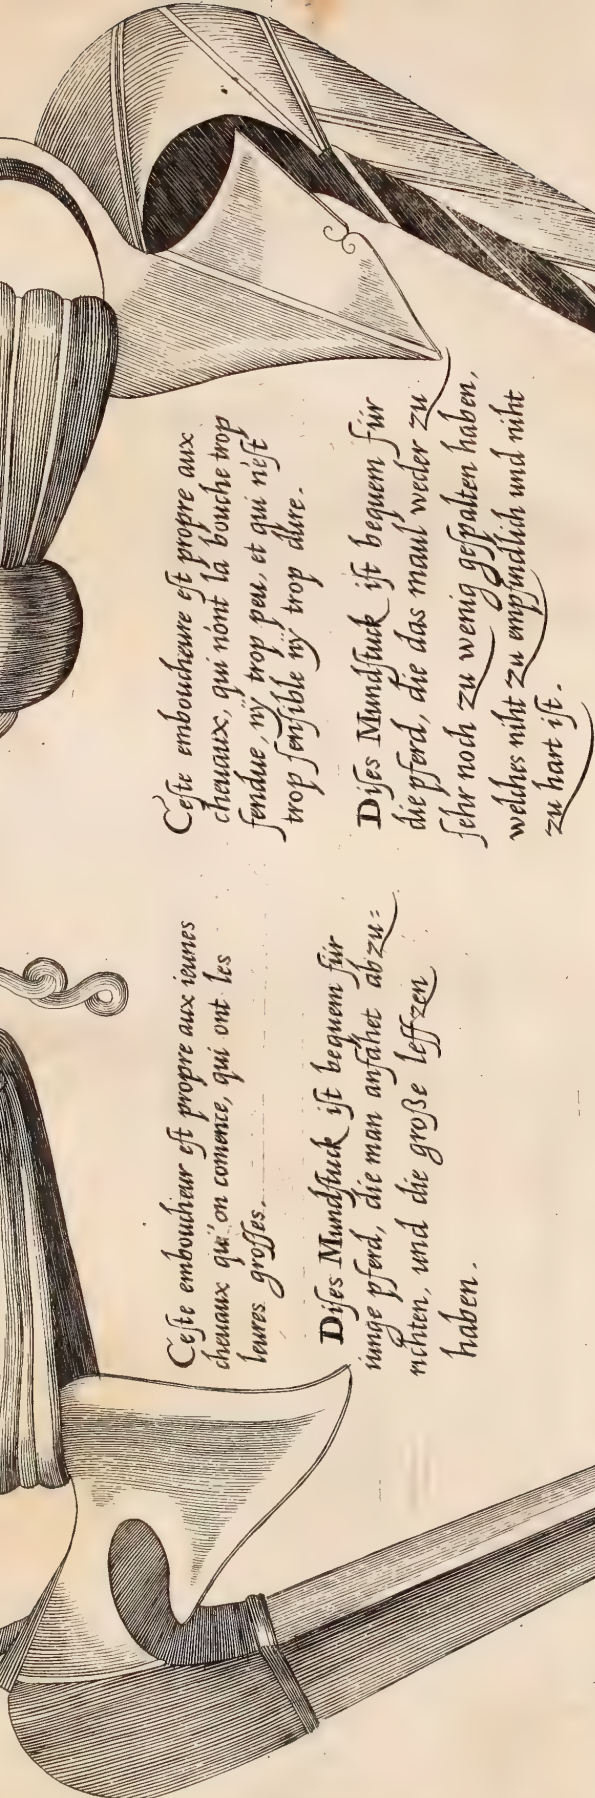 Ceſte emboucheur eſt propre aux ieunes
cheuaux qu'on comence, qui ont les
leures groſſes.
Diſes Mundſtuck iſt bequem für
iunge pferd, die man anfahet abzu=
richten, und die große leffzen
haben.
Ceſte emboucheure eſt propre aux
cheuaux, qui n'ont la bouche trop
fendue, nÿ trop peu, et qui n'eſt
trop ſenſible nÿ trop dure.
Diſes Mundſtuck iſt bequem für
die pferd, die das maul weder zu
ſehr noch zu wenig geſpalten haben,
welches niht zu empfindlich und niht
zu hart iſt.